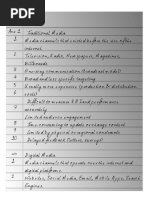 Ans 1. Traditional Media
1 Media channels that existed before the rise of the
internet.
2 Television, Radio, Newspapers, Magazines,
Billboards
3 One-way communication (broadcast model)
4 Broad and less specific targeting.
5 Usually more expensive (production & distribution
costs)
6 Difficult to measure ROI and performance
accurately.
7 Limited audience engagement
8 Time consuming to update or change content
9 Limited by regional or national boundaries
10 Delayed feedback (letters, surveys)
Digital Media
1 Media channels that operate over the internet and
digital platforms.
2 Websites, Social Media, Email, Mobile Apps, Search
Engines.